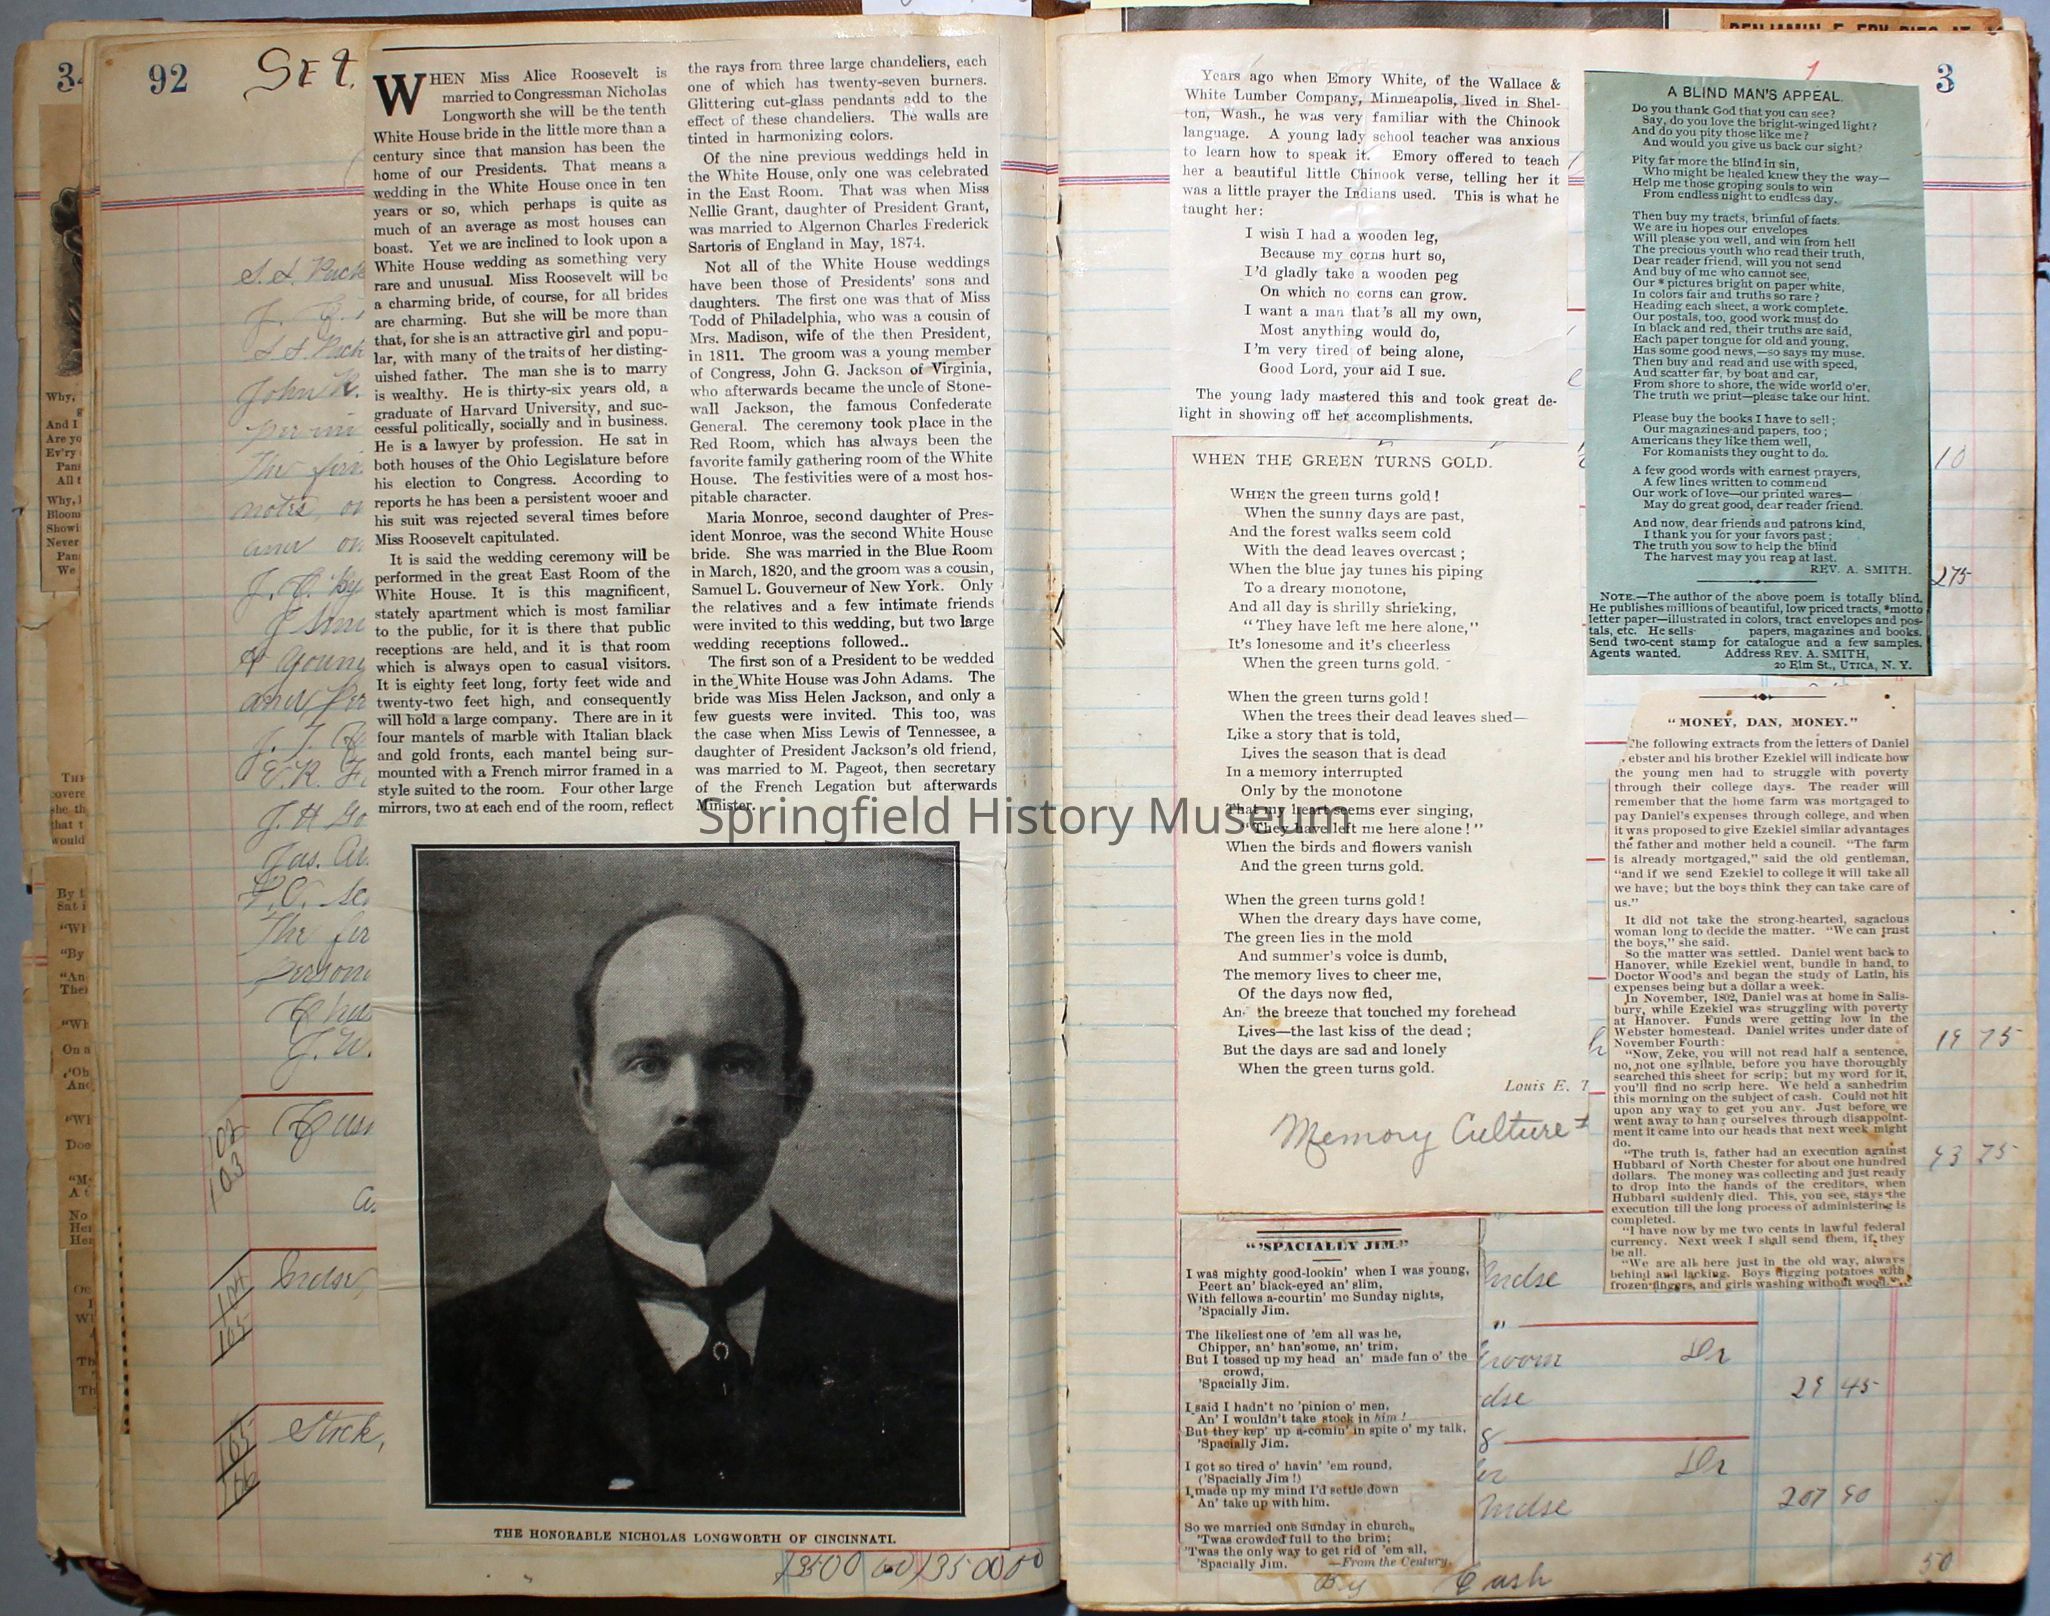 92
SEt.
WHEN Miss Alice Roosevelt is
married to Congressman Nicholas
Longworth she will be the tenth
White House bride in the little more than a
century since that mansion has been the
home of our Presidents. That means a
wedding in the White House once in ten
years or so, which perhaps is quite as
much of an average as most houses can
boast. Yet we are inclined to look upon a
White House wedding as something very
rare and unusual. Miss Roosevelt will be
a charming bride, of course, for all brides
are charming. But she will be more than
that, for she is an attractive girl and popu-
lar, with many of the traits of her disting-
uished father. The man she is to marry
is wealthy. He is thirty-six years old, a
graduate of Harvard University, and suc-
cessful politically, socially and in business.
He is a lawyer by profession. He sat in
both houses of the Ohio Legislature before
his election to Congress. According to
reports he has been a persistent wooer and
his suit was rejected several times before
Miss Roosevelt capitulated.
It is said the wedding ceremony will be
performed in the great East Room of the
White House. It is this magnificent,
stately apartment which is most familiar
to the public, for it is there that public
receptions are held, and it is that room
which is always open to casual visitors.
It is eighty feet long, forty feet wide and
twenty-two feet high, and consequently
will hold a large company. There are in it
four mantels of marble with Italian black
and gold fronts, each mantel being sur-
mounted with a French mirror framed in a
style suited to the room. Four other large
mirrors, two at each end of the room, reflect
the rays from three large chandeliers, each
one of which has twenty-seven burners.
Glittering cut-glass pendants add to the
effect of these chandeliers. The walls are
tinted in harmonizing colors.
Of the nine previous weddings held in
the White House, only one was celebrated
in the East Room. That was when Miss
Nellie Grant, daughter of President Grant,
was married to Algernon Charles Frederick
Sartoris of England in May, 1874.
Not all of the White House weddings
have been those of Presidents' sons and
daughters. The first one was that of Miss
Todd of Philadelphia, who was a cousin of
Mrs. Madison, wife of the then President,
in 1811. The groom was a young member
of Congress, John G. Jackson of Virginia,
who afterwards became the uncle of Stone-
wall Jackson, the famous Confederate
General. The ceremony took place in the
Red Room, which has always been the
favorite family gathering room of the White
House. The festivities were of a most hos-
pitable character.
Maria Monroe, second daughter of Pres-
ident Monroe, was the second White House
bride. She was married in the Blue Room
in March, 1820, and the groom was a cousin,
Samuel L. Gouverneur of New York. Only
the relatives and a few intimate friends
were invited to this wedding, but two large
wedding receptions followed..
The first son of a President to be wedded
in the White House was John Adams. The
bride was Miss Helen Jackson, and only a
few guests were invited. This too, was
the case when Miss Lewis of Tennessee, a
daughter of President Jackson's old friend,
was married to M. Pageot, then secretary
of the French Legation but afterwards
Minister.
THE HONORABLE NICHOLAS LONGWORTH OF CINCINNATI.
102
103
104
105
105
106
Mdse,
Stock,
Springfield History Museum
3
Years ago when Emory White, of the Wallace &
White Lumber Company, Minneapolis, lived in Shel-
ton, Wash., he was very familiar with the Chinook
language. A young lady school teacher was anxious
to learn how to speak it. Emory offered to teach
her a beautiful little Chinook verse, telling her it
was a little prayer the Indians used. This is what he
taught her:
I wish I had a wooden leg,
Because my corns hurt so,
I'd gladly take a wooden peg
On which no corns can grow.
I want a man that's all my own,
Most anything would do,
I'm very tired of being alone,
Good Lord, your aid I sue.
The young lady mastered this and took great de-
light in showing off her accomplishments.
WHEN THE GREEN TURNS GOLD.
WHEN the green turns gold!
When the sunny days are past,
And the forest walks seem cold
With the dead leaves overcast;
When the blue jay tunes his piping
To a dreary monotone,
And all day is shrilly shrieking,
"They have left me here alone,"
It's lonesome and it's cheerless
When the green turns gold.
When the green turns gold!
When the trees their dead leaves shed—
Like a story that is told,
Lives the season that is dead
In a memory interrupted
Only by the monotone
That my heart seems ever singing,
"They have left me here alone!"
When the birds and flowers vanish
And the green turns gold.
When the green turns gold!
When the dreary days have come,
The green lies in the mold
And summer's voice is dumb,
The memory lives to cheer me,
Of the days now fled,
An the breeze that touched my forehead
Lives—the last kiss of the dead;
But the days are sad and lonely
When the green turns gold.
Louis E. T
Memory Culture
"'SPACIALLY JIM."
I was mighty good-lookin' when I was young,
Peert an' black-eyed an' slim,
With fellows a-courtin' me Sunday nights,
'Spacially Jim.
The likeliest one of 'em all was he,
Chipper, an' han'some, an' trim,
But I tossed up my head an' made fun o' the
crowd,
'Spacially Jim.
I said I hadn't no 'pinion o' men,
An' I wouldn't take stock in him!
But they kep' up a-comin' in spite o' my talk,
'Spacially Jim.
I got so tired o' havin' 'em round,
('Spacially Jim!)
I made up my mind I'd settle down
An' take up with him.
So we married one Sunday in church,
'Twas crowded full to the brim;
'Twas the only way to get rid of 'em all,
'Spacially Jim. —From the Century.
A BLIND MAN'S APPEAL.
Do you thank God that you can see?
Say, do you love the bright-winged light?
And do you pity those like me?
And would you give us back our sight?
Pity far more the blind in sin,
Who might be healed knew they the way—
Help me those groping souls to win
From endless night to endless day.
Then buy my tracts, brimful of facts.
We are in hopes our envelopes
Will please you well, and win from hell
The precious youth who read their truth,
Dear reader friend, will you not send
And buy of me who cannot see,
Our * pictures bright on paper white,
In colors fair and truths so rare?
Heading each sheet, a work complete.
Our postals, too, good work must do
In black and red, their truths are said,
Each paper tongue for old and young,
Has some good news,—so says my muse.
Then buy and read and use with speed,
And scatter far, by boat and car,
From shore to shore, the wide world o'er,
The truth we print—please take our hint.
Please buy the books I have to sell;
Our magazines and papers, too;
Americans they like them well,
For Romanists they ought to do.
A few good words with earnest prayers,
A few lines written to commend
Our work of love—our printed wares—
May do great good, dear reader friend.
And now, dear friends and patrons kind,
I thank you for your favors past;
The truth you sow to help the blind
The harvest may you reap at last.
REV. A. SMITH.
NOTE.—The author of the above poem is totally blind.
He publishes millions of beautiful, low priced tracts, *motto
letter paper—illustrated in colors, tract envelopes and pos-
tals, etc. He sells papers, magazines and books.
Send two-cent stamp for catalogue and a few samples.
Agents wanted. Address REV. A. SMITH,
20 Elm St., UTICA, N. Y.
"MONEY, DAN, MONEY."
The following extracts from the letters of Daniel
ebster and his brother Ezekiel will indicate how
the young men had to struggle with poverty
through their college days. The reader will
remember that the home farm was mortgaged to
pay Daniel's expenses through college, and when
it was proposed to give Ezekiel similar advantages
the father and mother held a council. "The farm
is already mortgaged," said the old gentleman,
"and if we send Ezekiel to college it will take all
we have; but the boys think they can take care of
us."
It did not take the strong-hearted, sagacious
woman long to decide the matter. "We can trust
the boys," she said.
So the matter was settled. Daniel went back to
Hanover, while Ezekiel went, bundle in hand, to
Doctor Wood's and began the study of Latin, his
expenses being but a dollar a week.
In November, 1802, Daniel was at home in Salis-
bury, while Ezekiel was struggling with poverty
at Hanover. Funds were getting low in the
Webster homestead. Daniel writes under date of
November Fourth:
"Now, Zeke, you will not read half a sentence,
no, not one syllable, before you have thoroughly
searched this sheet for scrip; but my word for it,
you'll find no scrip here. We held a sanhedrim
this morning on the subject of cash. Could not hit
upon any way to get you any. Just before we
went away to hang ourselves through disappoint-
ment it came into our heads that next week might
do.
"The truth is, father had an execution against
Hubbard of North Chester for about one hundred
dollars. The money was collecting and just ready
to drop into the hands of the creditors, when
Hubbard suddenly died. This, you see, stays the
execution till the long process of administering is
completed.
"I have now by me two cents in lawful federal
currency. Next week I shall send them, if they
be all.
"We are all here just in the old way, always
behind and lacking. Boys digging potatoes with
frozen fingers, and girls washing without wood."
10
275
19 75
43 75
Mdse
Dr
29 45
Dr
Mdse
207 90
Cash
50